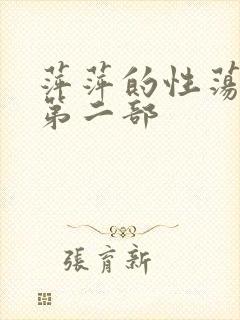 萍萍的性蕩
第二部
張育新